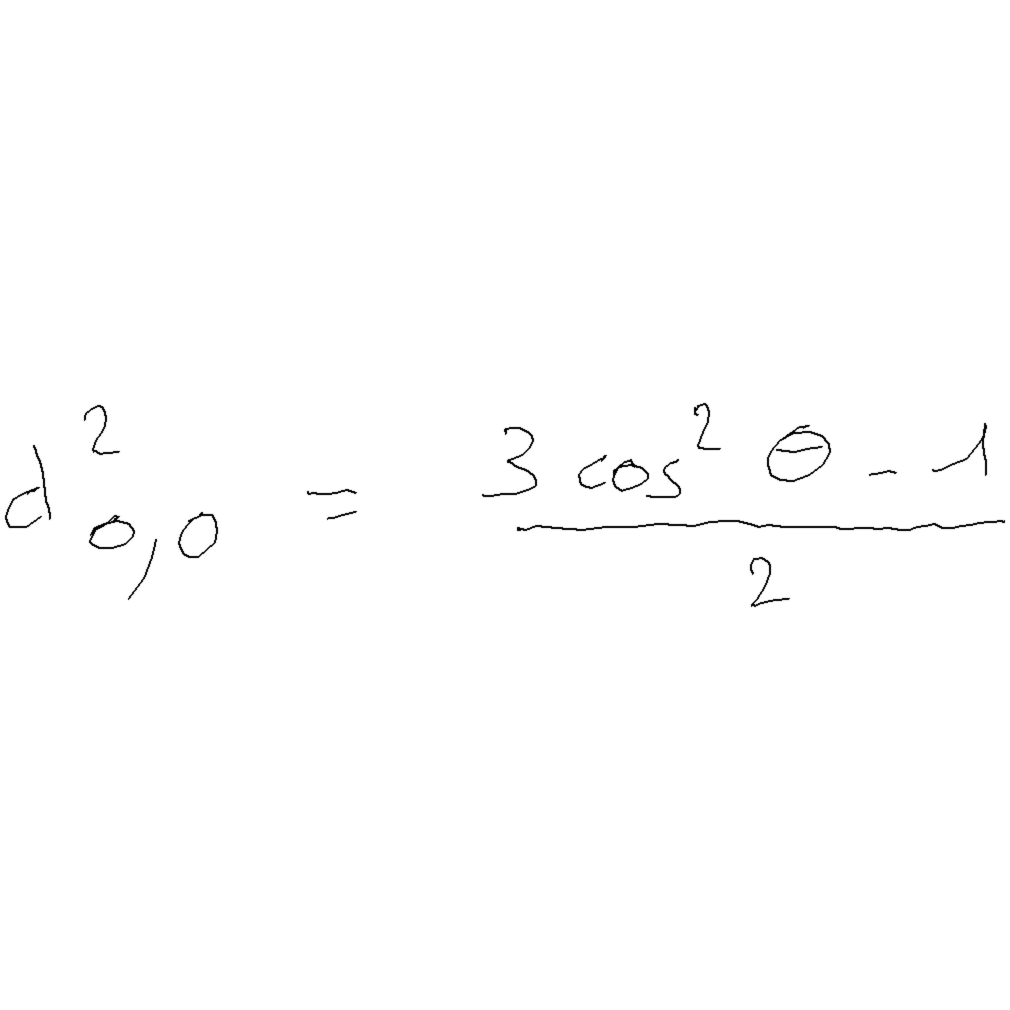 d^2_{0,0} = \frac{3 cos^2 θ - 1}{2}